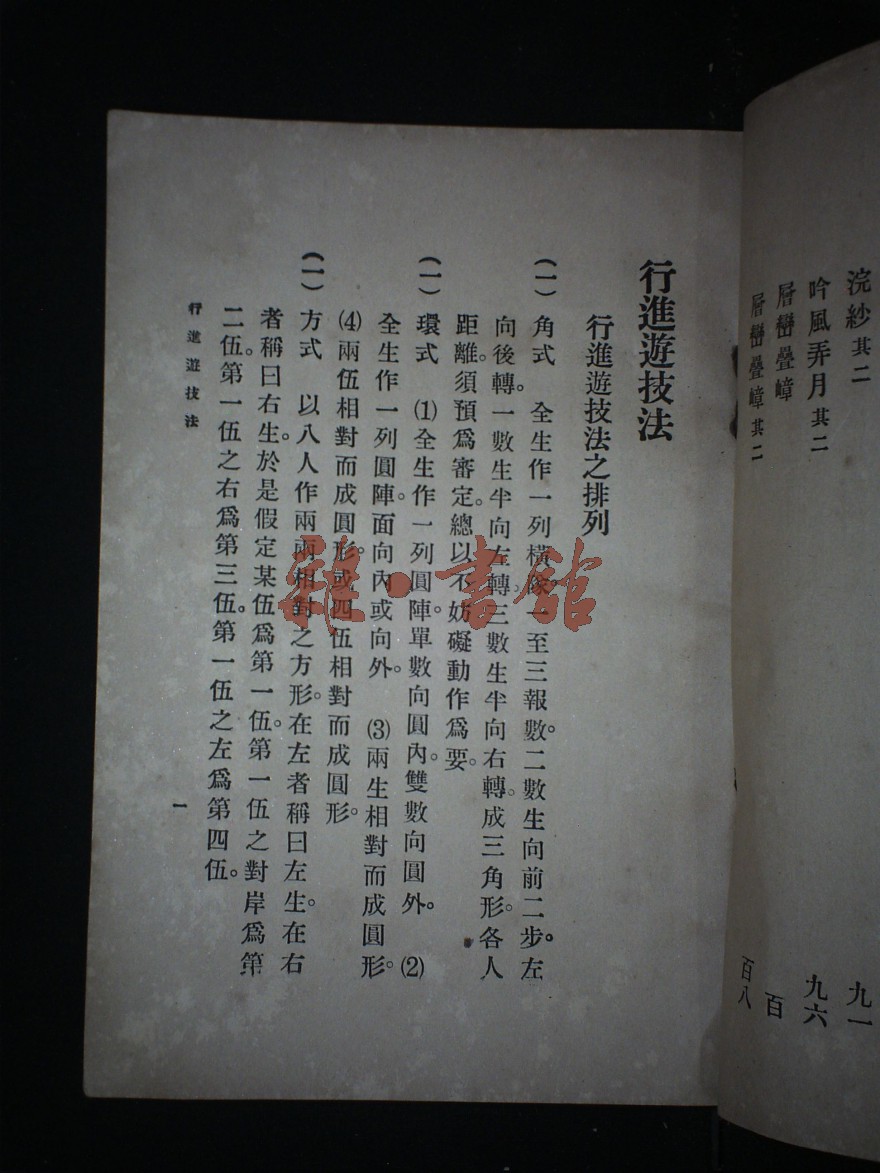 浣紗其二 九一
吟風弄月其二 九六
層巒疊嶂 百
層巒疊嶂其二 百八
行進遊技法
行進遊技法之排列
(一) 角式 全生作一列橫隊。一至三報數。二數生向前二步。左
向後轉一數生半向左轉。三數生半向右轉。成三角形。各人
距離須預爲審定。總以不妨礙動作爲要。
(一) 環式 ⑴全生作一列圓陣。單數向圓內。雙數向圓外。 ⑵
全生作一列圓陣。面向內或向外。 ⑶兩生相對而成圓形。
⑷兩伍相對而成圓形。或四伍相對而成圓形。
(一) 方式 以八人作兩兩相對之方形。在左者稱曰左生。在右
者稱曰右生。於是假定某伍爲第一伍。第一伍之對岸爲第
二伍。第一伍之右爲第三伍。第一伍之左爲第四伍。
行進遊技法
一
雜·書館